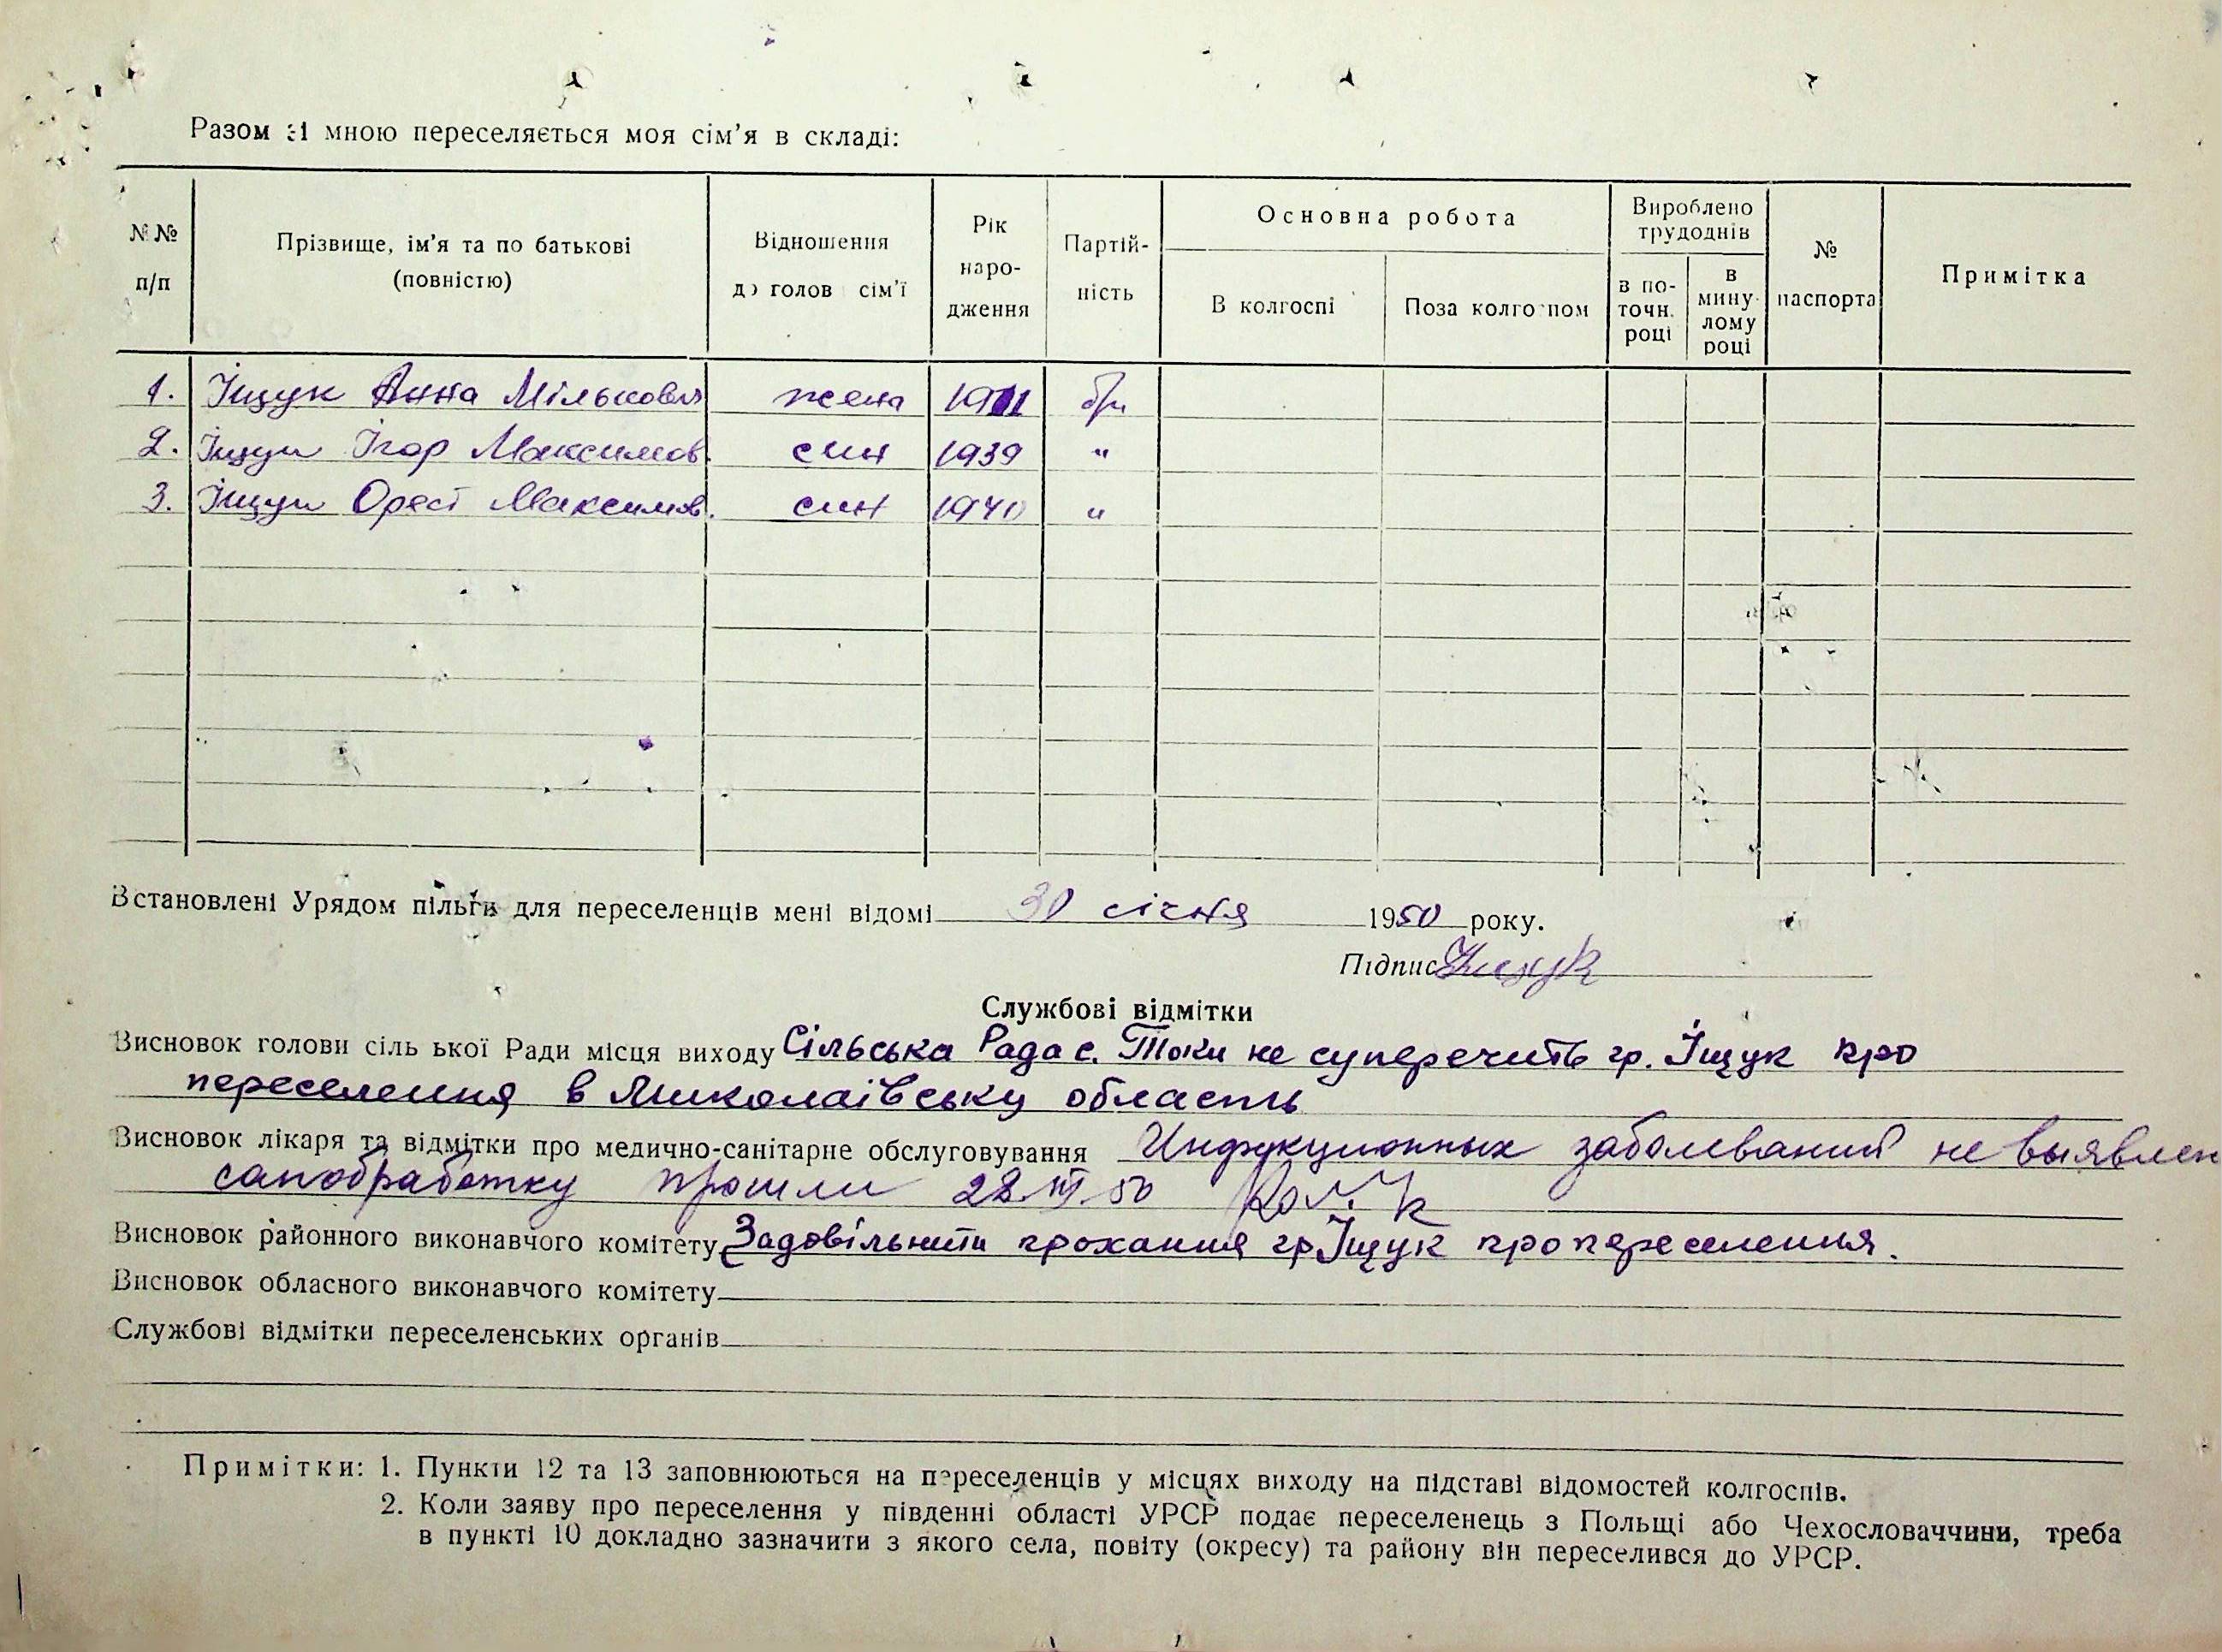 Разом зі мною переселяється моя сім'я в складі:
№№ п/п
Прізвище, ім'я та по батькові (повністю)
Відношення до голов сім'ї
Рік народження
Партійність
Основна робота
В колгоспі
Поза колгоспом
Вироблено трудоднів
в поточн. році
в минулому році
№ паспорта
Примітка
1. Іщук Анна Мільковая жена 1911 бп
2. Іщук Ігор Максимов. син 1939 "
3. Іщук Орест Максимов. син 1940 "
Встановлені Урядом пільги для переселенців мені відомі 30 січня 1950 року.
Підпис Іщук
Службові відмітки
Висновок голови сільської Ради місця виходу Сільська Рада с. Токи не суперечить гр. Іщук про
переселення в Миколаївську область
Висновок лікаря та відмітки про медично-санітарне обслуговування Инфекционных заболеваний не выявлен
санобработку прошли 28.III.50
Висновок районного виконавчого комітету Задовільнити прохання гр Іщук про переселення.
Висновок обласного виконавчого комітету
Службові відмітки переселенських органів
Примітки: 1. Пункти 12 та 13 заповнюються на переселенців у місцях виходу на підставі відомостей колгоспів.
2. Коли заяву про переселення у південні області УРСР подає переселенець з Польщі або Чехословаччини, треба
в пункті 10 докладно зазначити з якого села, повіту (окресу) та району він переселився до УРСР.